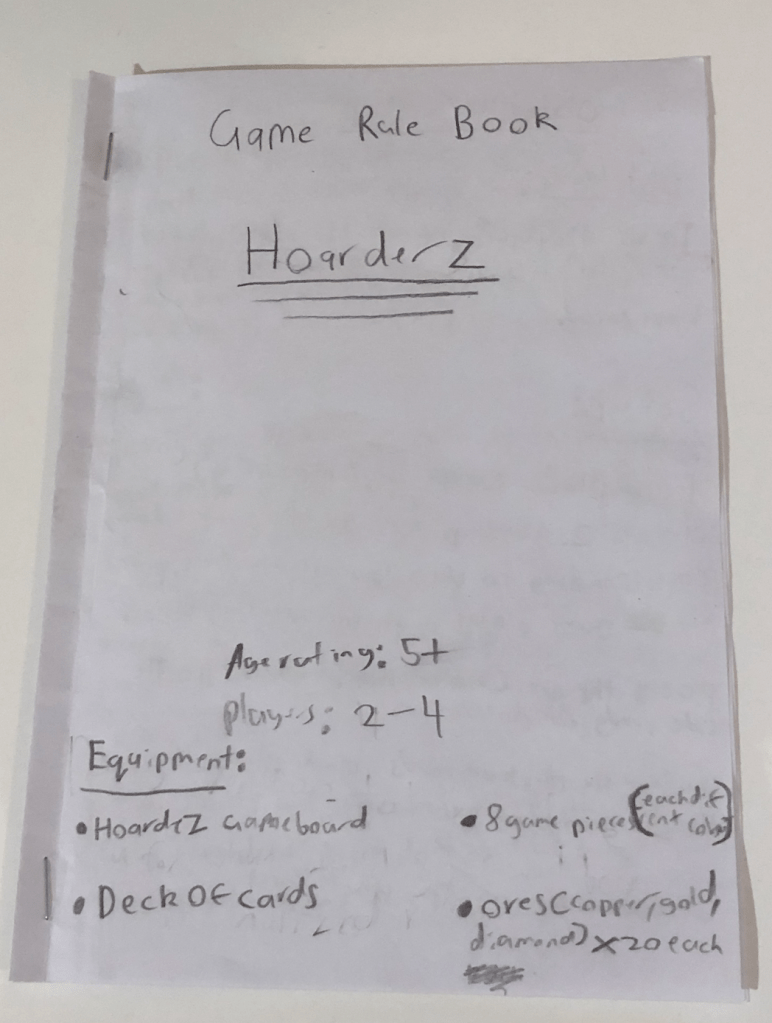 Game Rule Book
Hoarderz
Age rating: 5+
players: 2-4
Equipment:
• Hoarderz Gameboard
• Deck Of cards
• 8 game pieces (each dif
erent color)
• ores (copper, gold,
diamond) x20 each